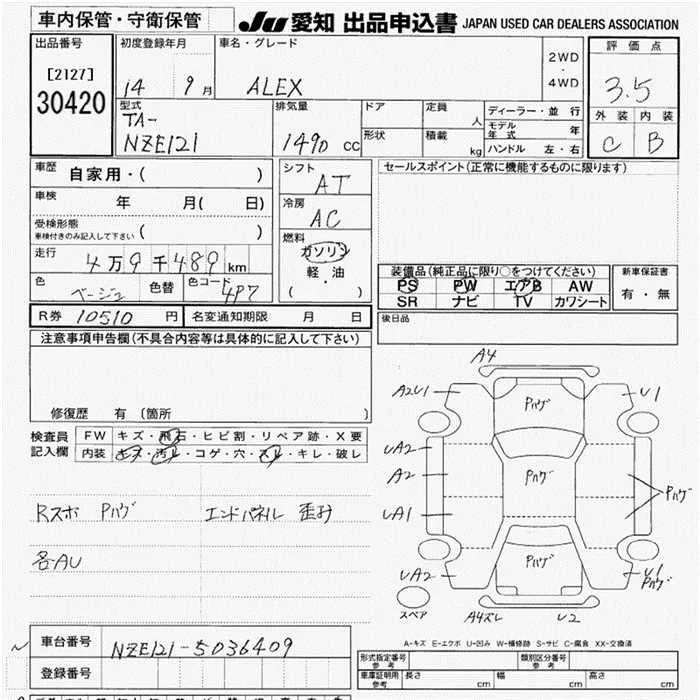 車内保管・守衛保管
JU 愛知 出品申込書 JAPAN USED CAR DEALERS ASSOCIATION
出品番号
[2127]
30420
初度登録年月
14 9 月
車名・グレード
ALEX
2WD
・
4WD
評価点
3.5
外装 内装
C B
型式
TA-
NZE121
排気量
1490 cc
ドア
形状
定員
人
積載
kg
ディーラー・並 行
モデル年式 年
ハンドル 左・右
車歴
自家用・( )
車検
年 月( 日)
受検形態
車検付きのみ記入して下さい ( )
走行
4万9千489 km
色
ベージュ
色替
色コード
4P7
シフト
AT
冷房
AC
燃料
ガソリン
軽・油
( )
セールスポイント(正常に機能するものに限ります)
装備品(純正品に限り○をつけてください)
PS PW エアB AW
SR ナビ TV カワシート
新車保証書
有・無
R券 10510 円
名変通知期限 月 日
後日品
注意事項申告欄(不具合内容等は具体的に記入して下さい)
修復歴 有 〔箇所 〕
検査員
記入欄
FW キズ・飛石・ヒビ割・リペア跡・X要
内装 キズ・汚レ・コゲ・穴・スレ・キレ・破レ
Rスポ Pハゲ エンドパネル 歪み
各AU
A4
A2U1 Pハゲ U1
UA2
A2 Pハゲ Pハゲ
UA1
UA2 Pハゲ U1
Pハゲ
スペア A4ズレ U2
A-キズ E-エクボ U-凹み W-補修跡 S-サビ C-腐食 XX-交換済
車台番号 NZE121-5036409
登録番号
形式指定番号
参考
類別区分番号
参考
車庫証明用
参考
長さ cm 幅 cm 高さ cm